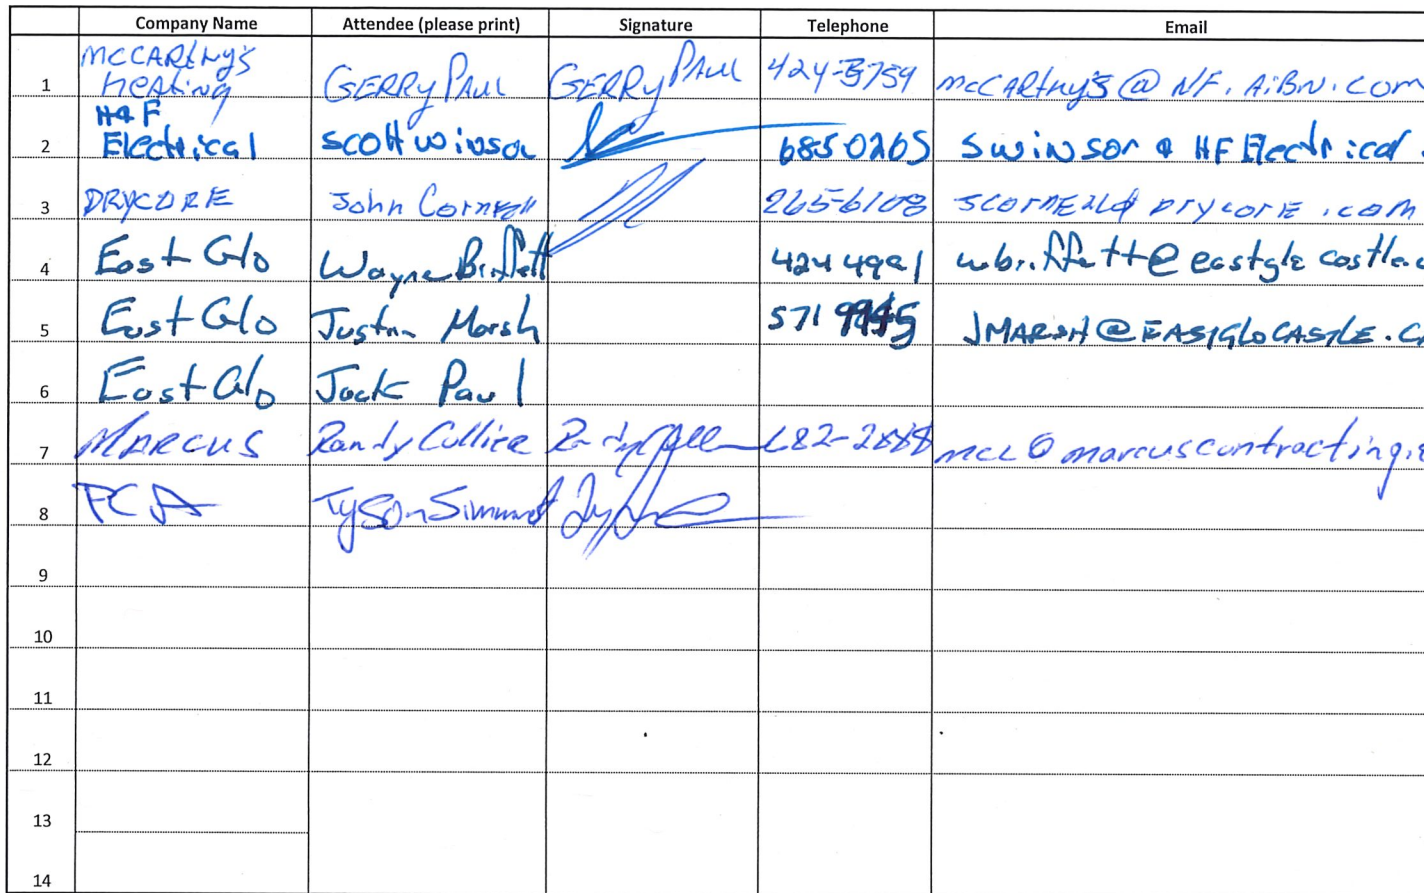 Company Name Attendee (please print) Signature Telephone Email
McCARthy's
1 HeAting GERRY PAUL GERRY PAUL 424-3759 mcCARthy's@NF.AiBN.com
H&F
2 Electrical Scott Winsor 6850265 Swinsor @ HFElectrical
3 DRYCORE John Cornell 265-6108 DryCorE.com
4 East Glo Wayne Briffett 424 4991 wbriffett@eastglo castle.c
5 East Glo Justin Marsh 571 9945 JMARSH@EASTGLOCASTLE.CA
6 East Glo Jack Paul
7 MARCUS Randy Collier 682-2888 mcl@marcuscontracting.
8 PCA Tyson
9
10
11
12
13
14